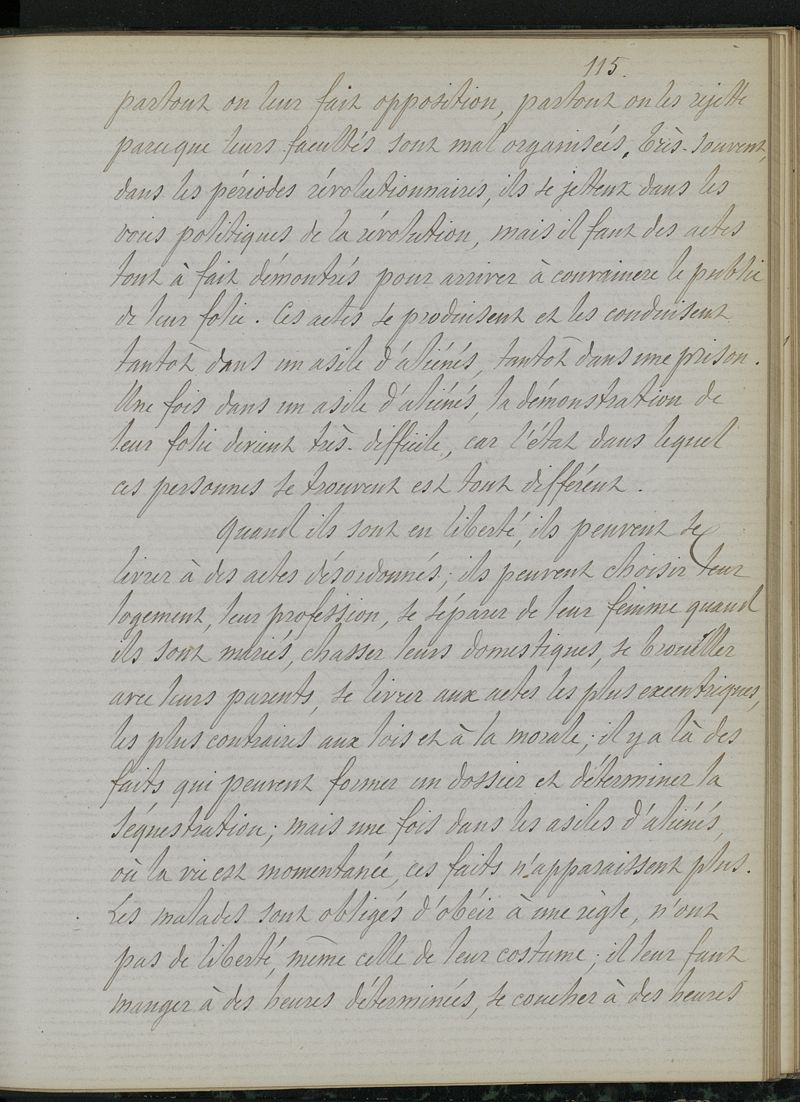 115.
partout on leur fait opposition, partout on les rejette
parceque leurs facultés sont mal organisées. Très-souvent,
dans les périodes révolutionnaires, ils se jettent dans les
voies politiques de la révolution, mais il faut des actes
tout à fait démontrés pour arriver à convaincre le public
de leur folie. Ces actes se produisent et les conduisent
tantôt dans un asile d'aliénés, tantôt dans une prison.
Une fois dans un asile d'aliénés, la démonstration de
leur folie devient très-difficile, car l'état dans lequel
ces personnes se trouvent est tout différent.
Quand ils sont en liberté, ils peuvent se
livrer à des actes désordonnés; ils peuvent choisir leur
logement, leur profession, se séparer de leur femme quand
ils sont mariés, chasser leurs domestiques, se brouiller
avec leurs parents, se livrer aux actes les plus excentriques,
les plus contraires aux lois et à la morale; il y a là des
faits qui peuvent former un dossier et déterminer la
séquestration; mais une fois dans les asiles d'aliénés,
où la vie est momentanée, ces faits n'apparaissent plus.
Les malades sont obligés d'obéir à une règle, n'ont
pas de liberté, même celle de leur costume; il leur faut
manger à des heures déterminées, se coucher à des heures